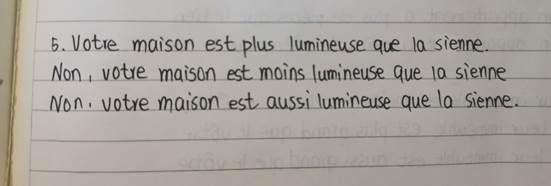 5. Votre maison est plus lumineuse que la sienne.
Non, votre maison est moins lumineuse que la sienne
Non. votre maison est aussi lumineuse que la sienne.